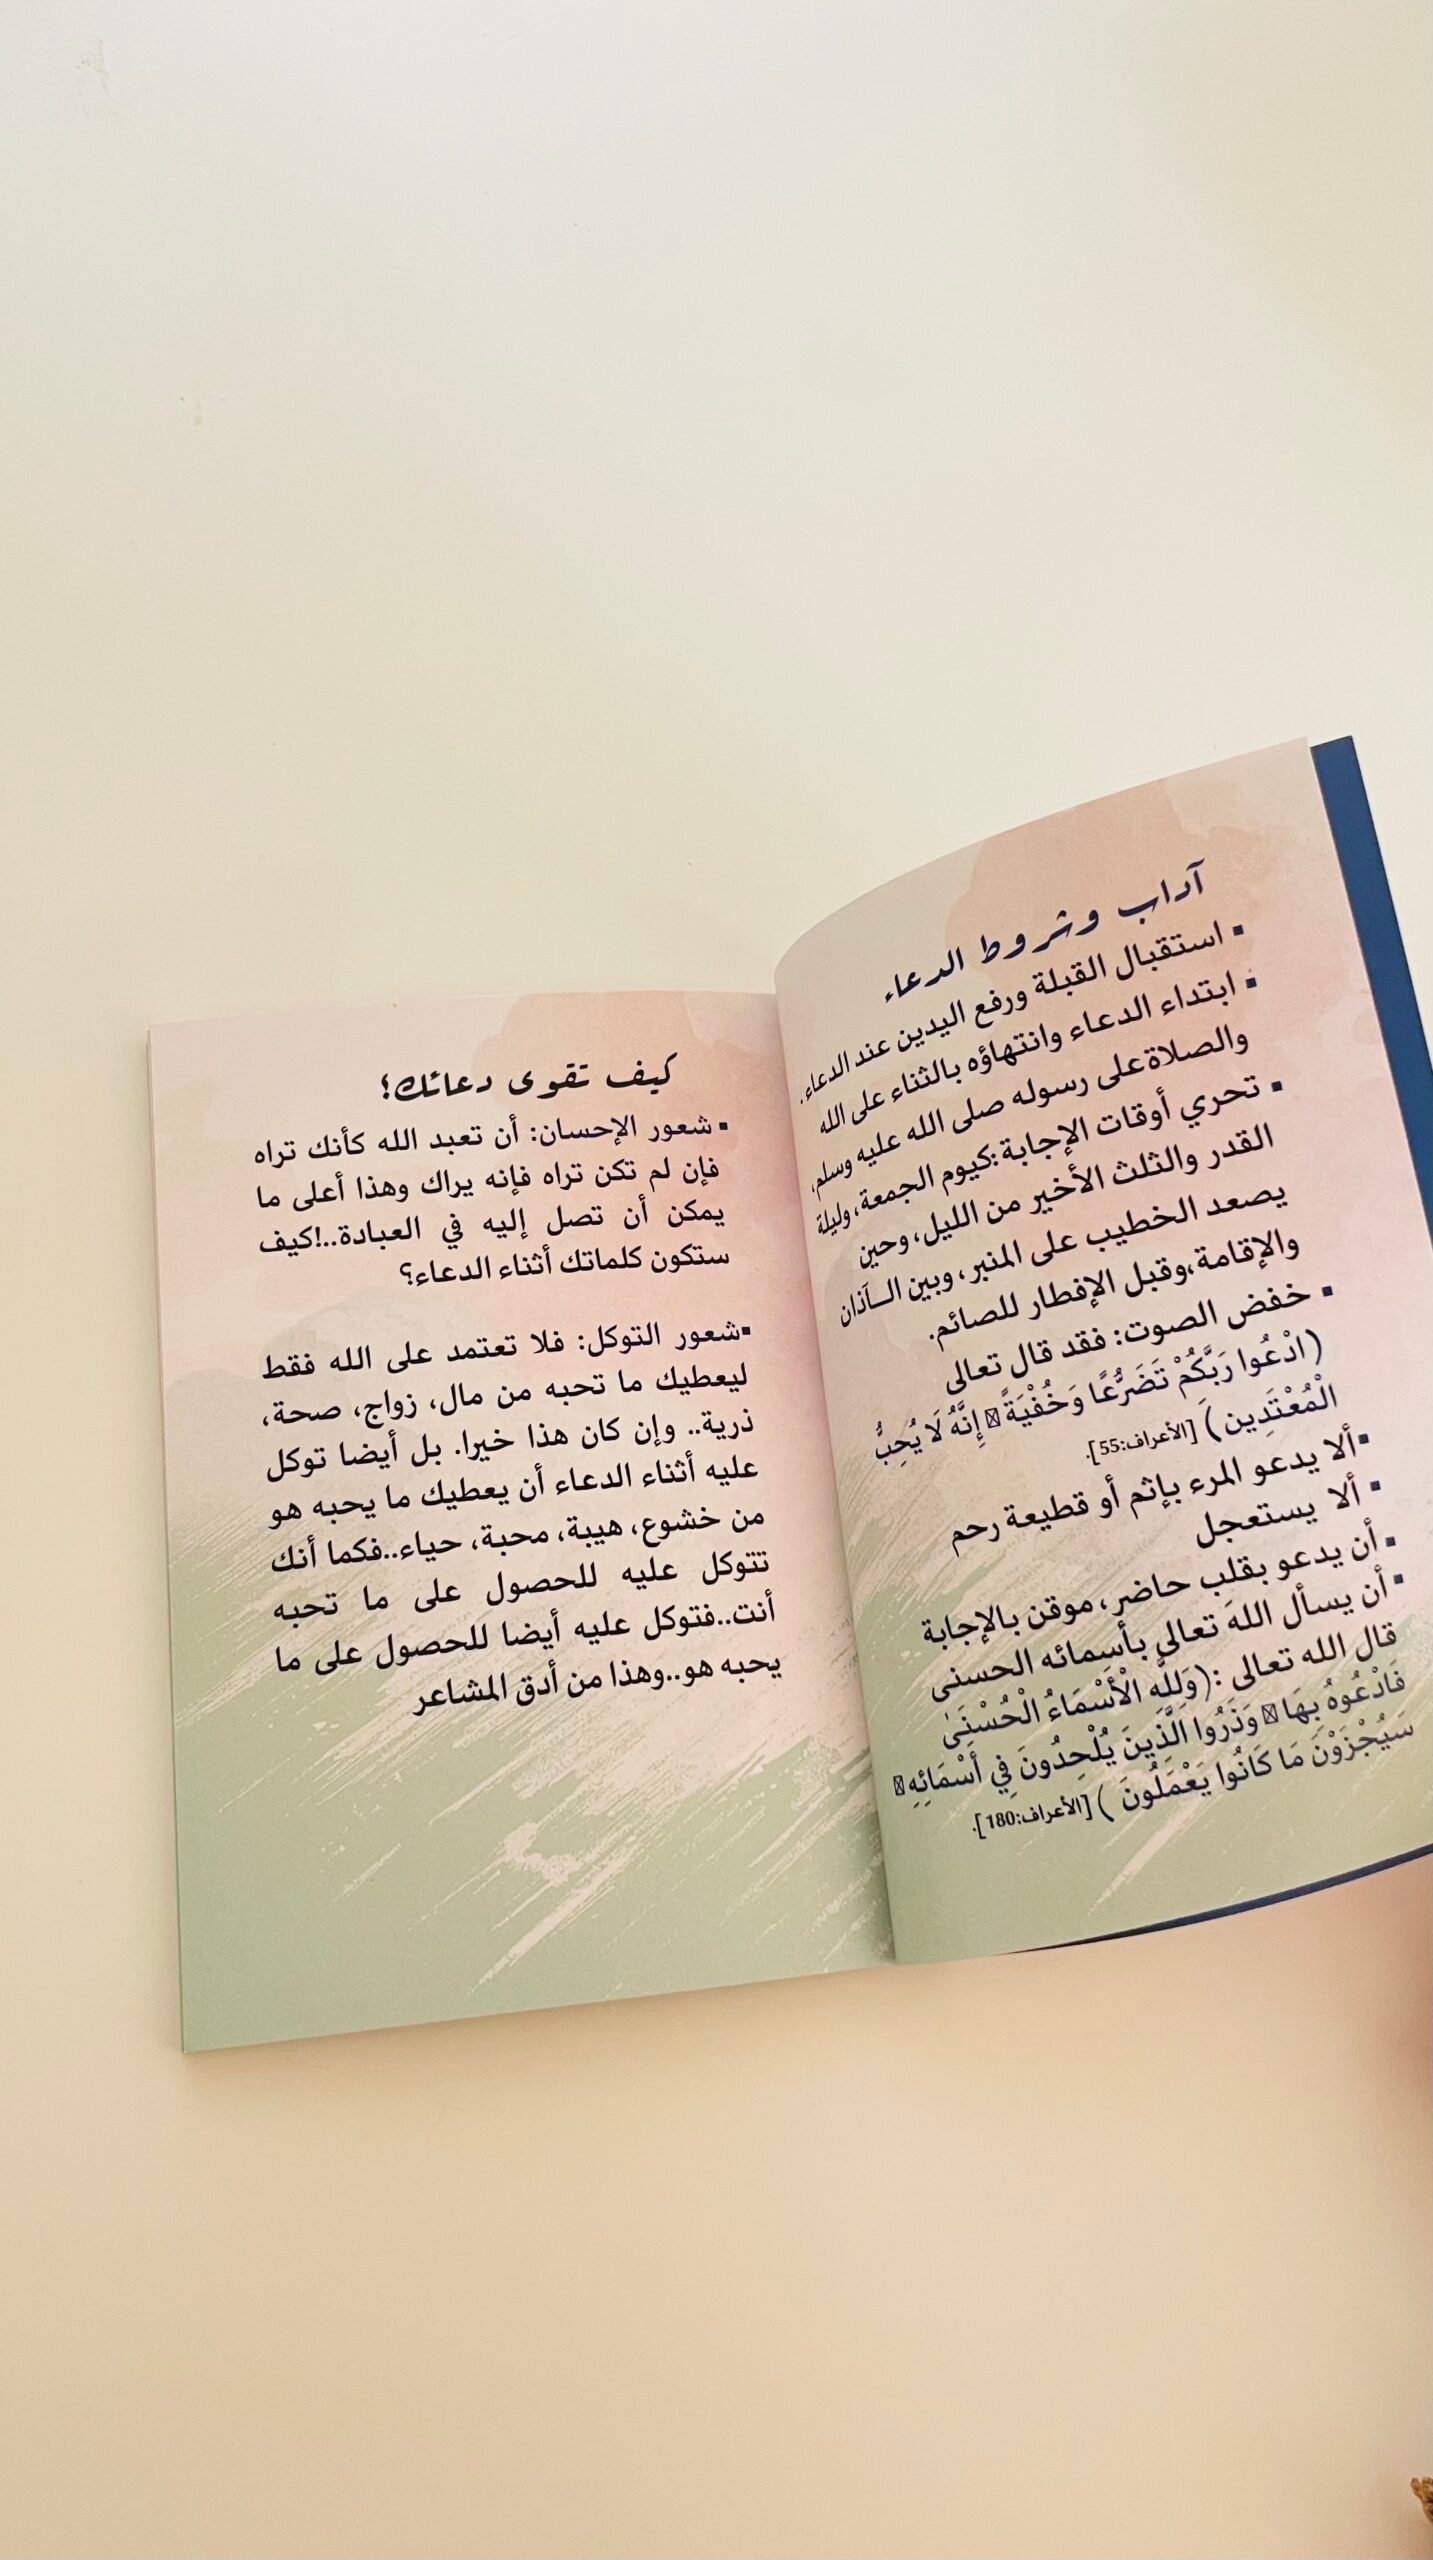 آداب وشروط الدعاء
▪ استقبال القبلة ورفع اليدين عند الدعاء.
▪ ابتداء الدعاء وانتهاؤه بالثناء على الله
والصلاة على رسوله صلى الله عليه وسلم،
▪ تحري أوقات الإجابة:كيوم الجمعة، وليلة
القدر والثلث الأخير من الليل، وحين
يصعد الخطيب على المنبر، وبين الـآذان
والإقامة،وقبل الإفطار للصائم.
▪ خفض الصوت: فقد قال تعالى
(ادْعُوا رَبَّكُمْ تَضَرُّعًا وَخُفْيَةً إِنَّهُ لَا يُحِبُّ
الْمُعْتَدِين) [الأعراف:55].
▪ ألا يدعو المرء بإثم أو قطيعة رحم
▪ ألا يستعجل
▪ أن يدعو بقلب حاضر، موقن بالإجابة
▪ أن يسأل الله تعالى بأسمائه الحسنى
قال الله تعالى :(وَلِلَّهِ الْأَسْمَاءُ الْحُسْنَىٰ
فَادْعُوهُ بِهَا وَذَرُوا الَّذِينَ يُلْحِدُونَ فِي أَسْمَائِهِ
سَيُجْزَوْنَ مَا كَانُوا يَعْمَلُونَ )[الأعراف:180].
كيف تقوى دعائك؟
▪ شعور الإحسان: أن تعبد الله كأنك تراه
فإن لم تكن تراه فإنه يراك وهذا أعلى ما
يمكن أن تصل إليه في العبادة..!كيف
ستكون كلماتك أثناء الدعاء؟
▪شعور التوكل: فلا تعتمد على الله فقط
ليعطيك ما تحبه من مال، زواج، صحة،
ذرية.. وإن كان هذا خيرا. بل أيضا توكل
عليه أثناء الدعاء أن يعطيك ما يحبه هو
من خشوع، هيبة، محبة، حياء..فكما أنك
تتوكل عليه للحصول على ما تحبه
أنت..فتوكل عليه أيضا للحصول على ما
يحبه هو..وهذا من أدق المشاعر